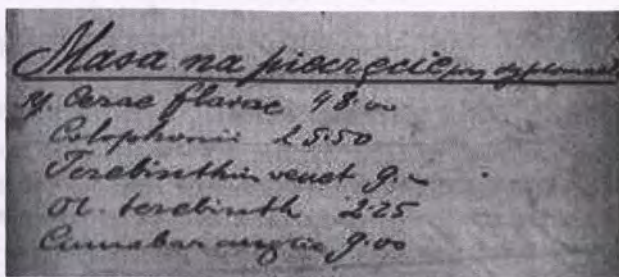 Masa na pieczęcie przy dyplomach
Rp. Cerae flavae 48.00
Colophonii 25.50
Terebinthin venet 9.-
Ol. terebinth 2.25
Cinnabar anglic 9.00